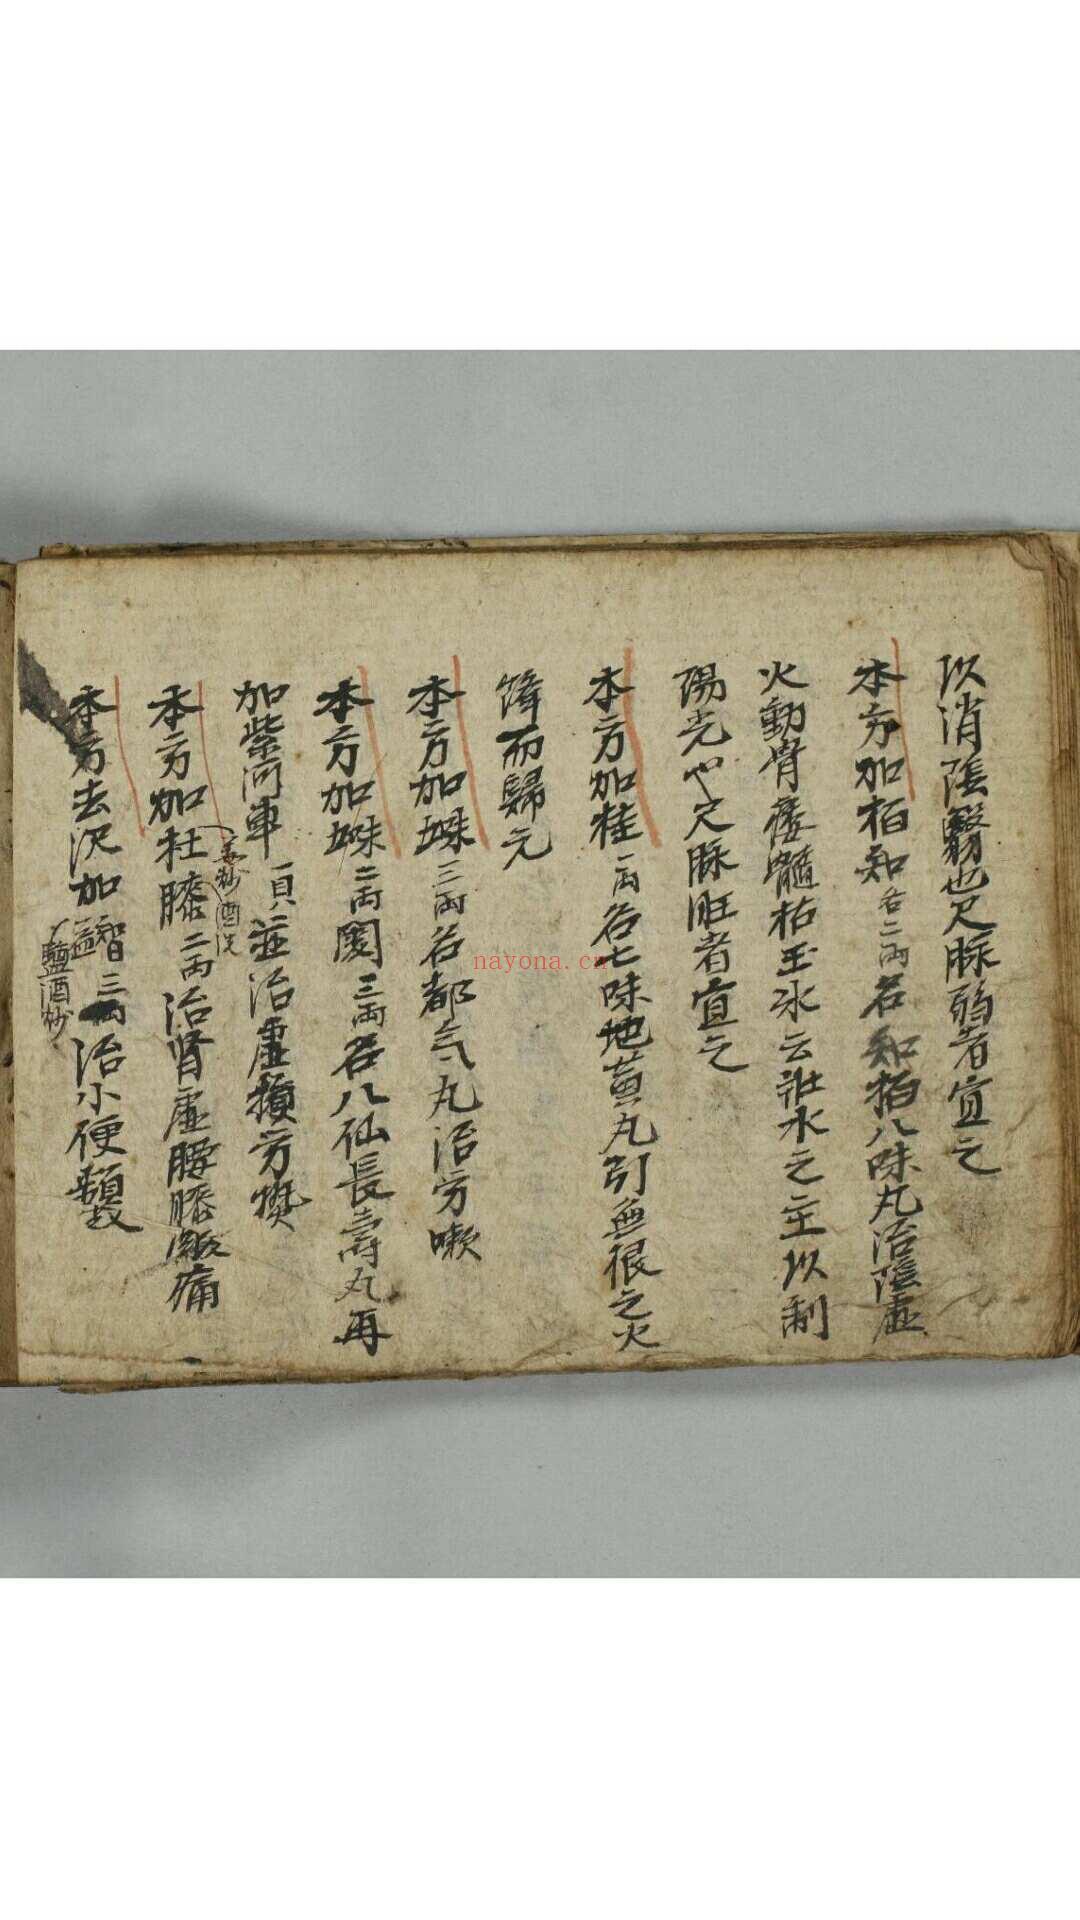 以消陰翳也尺脉弱者宜之
本方加栢知各二兩名知栢八味丸治陰虛
火動骨痿髓枯王冰云壯水之主以制
陽光也尺脉旺者宜之
本方加桂一兩名七味地黄丸引無根之火
降而歸元
本方加味三兩名都氣丸治劳嗽
本方加味二兩门三兩名八仙長壽丸再
加紫河車一具並治虛損劳熱
本方加杜膝二兩治肾虛腰膝痠痛
姜炒酒洗
本方去沢加益智三兩治小便頻数
鹽酒炒
nayona.cn